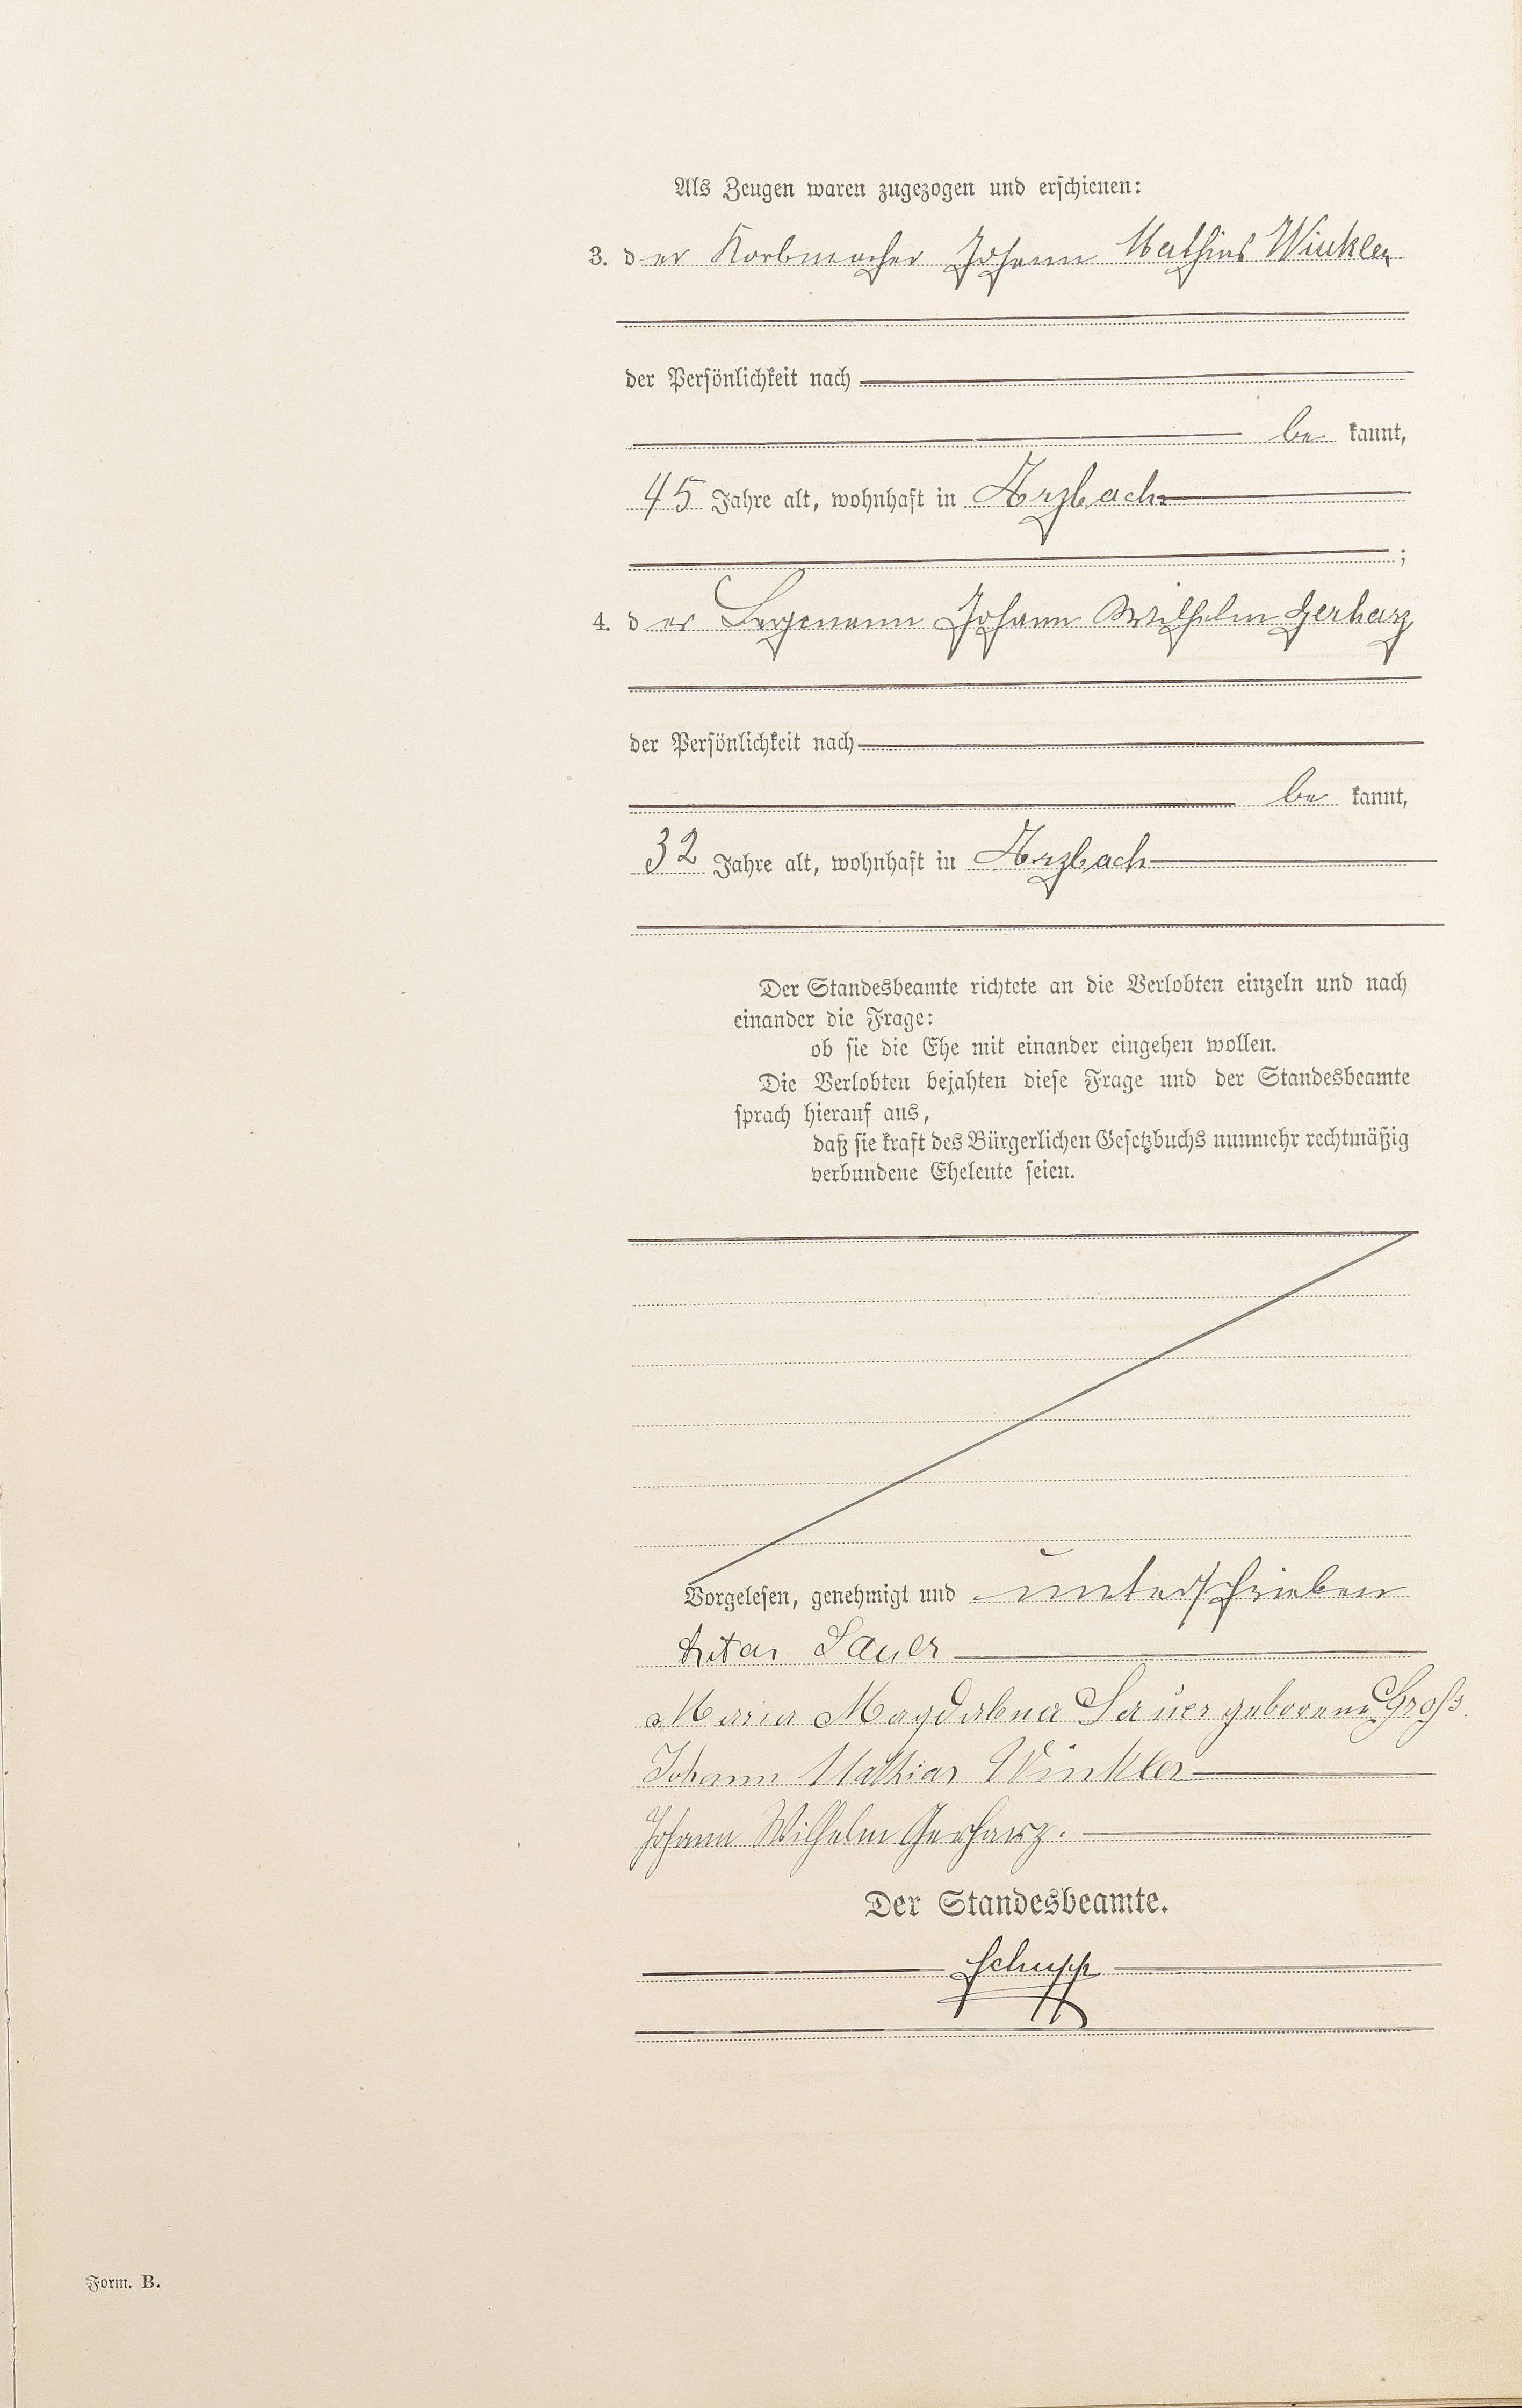 Als Zeugen waren zugezogen und erschienen:
3. der Korbmacher Johann Mathias Winkler
der Persönlichkeit nach
be kannt,
45 Jahre alt, wohnhaft in Arzbach
;
4. der Bergmann Johann Wilhelm Gerharz
der Persönlichkeit nach
be kannt,
32 Jahre alt, wohnhaft in Arzbach
Der Standesbeamte richtete an die Verlobten einzeln und nach
einander die Frage:
ob sie die Ehe mit einander eingehen wollen.
Die Verlobten bejahten diese Frage und der Standesbeamte
sprach hierauf aus,
daß sie kraft des Bürgerlichen Gesetzbuchs nunmehr rechtmäßig
verbundene Eheleute seien.
Vorgelesen, genehmigt und unterschrieben
Sauer
Maria Magdalena Sauer geborene Groß.
Johann Mathias Winkler
Johann Wilhelm Gerharz.
Der Standesbeamte.
Schupp
Form. B.